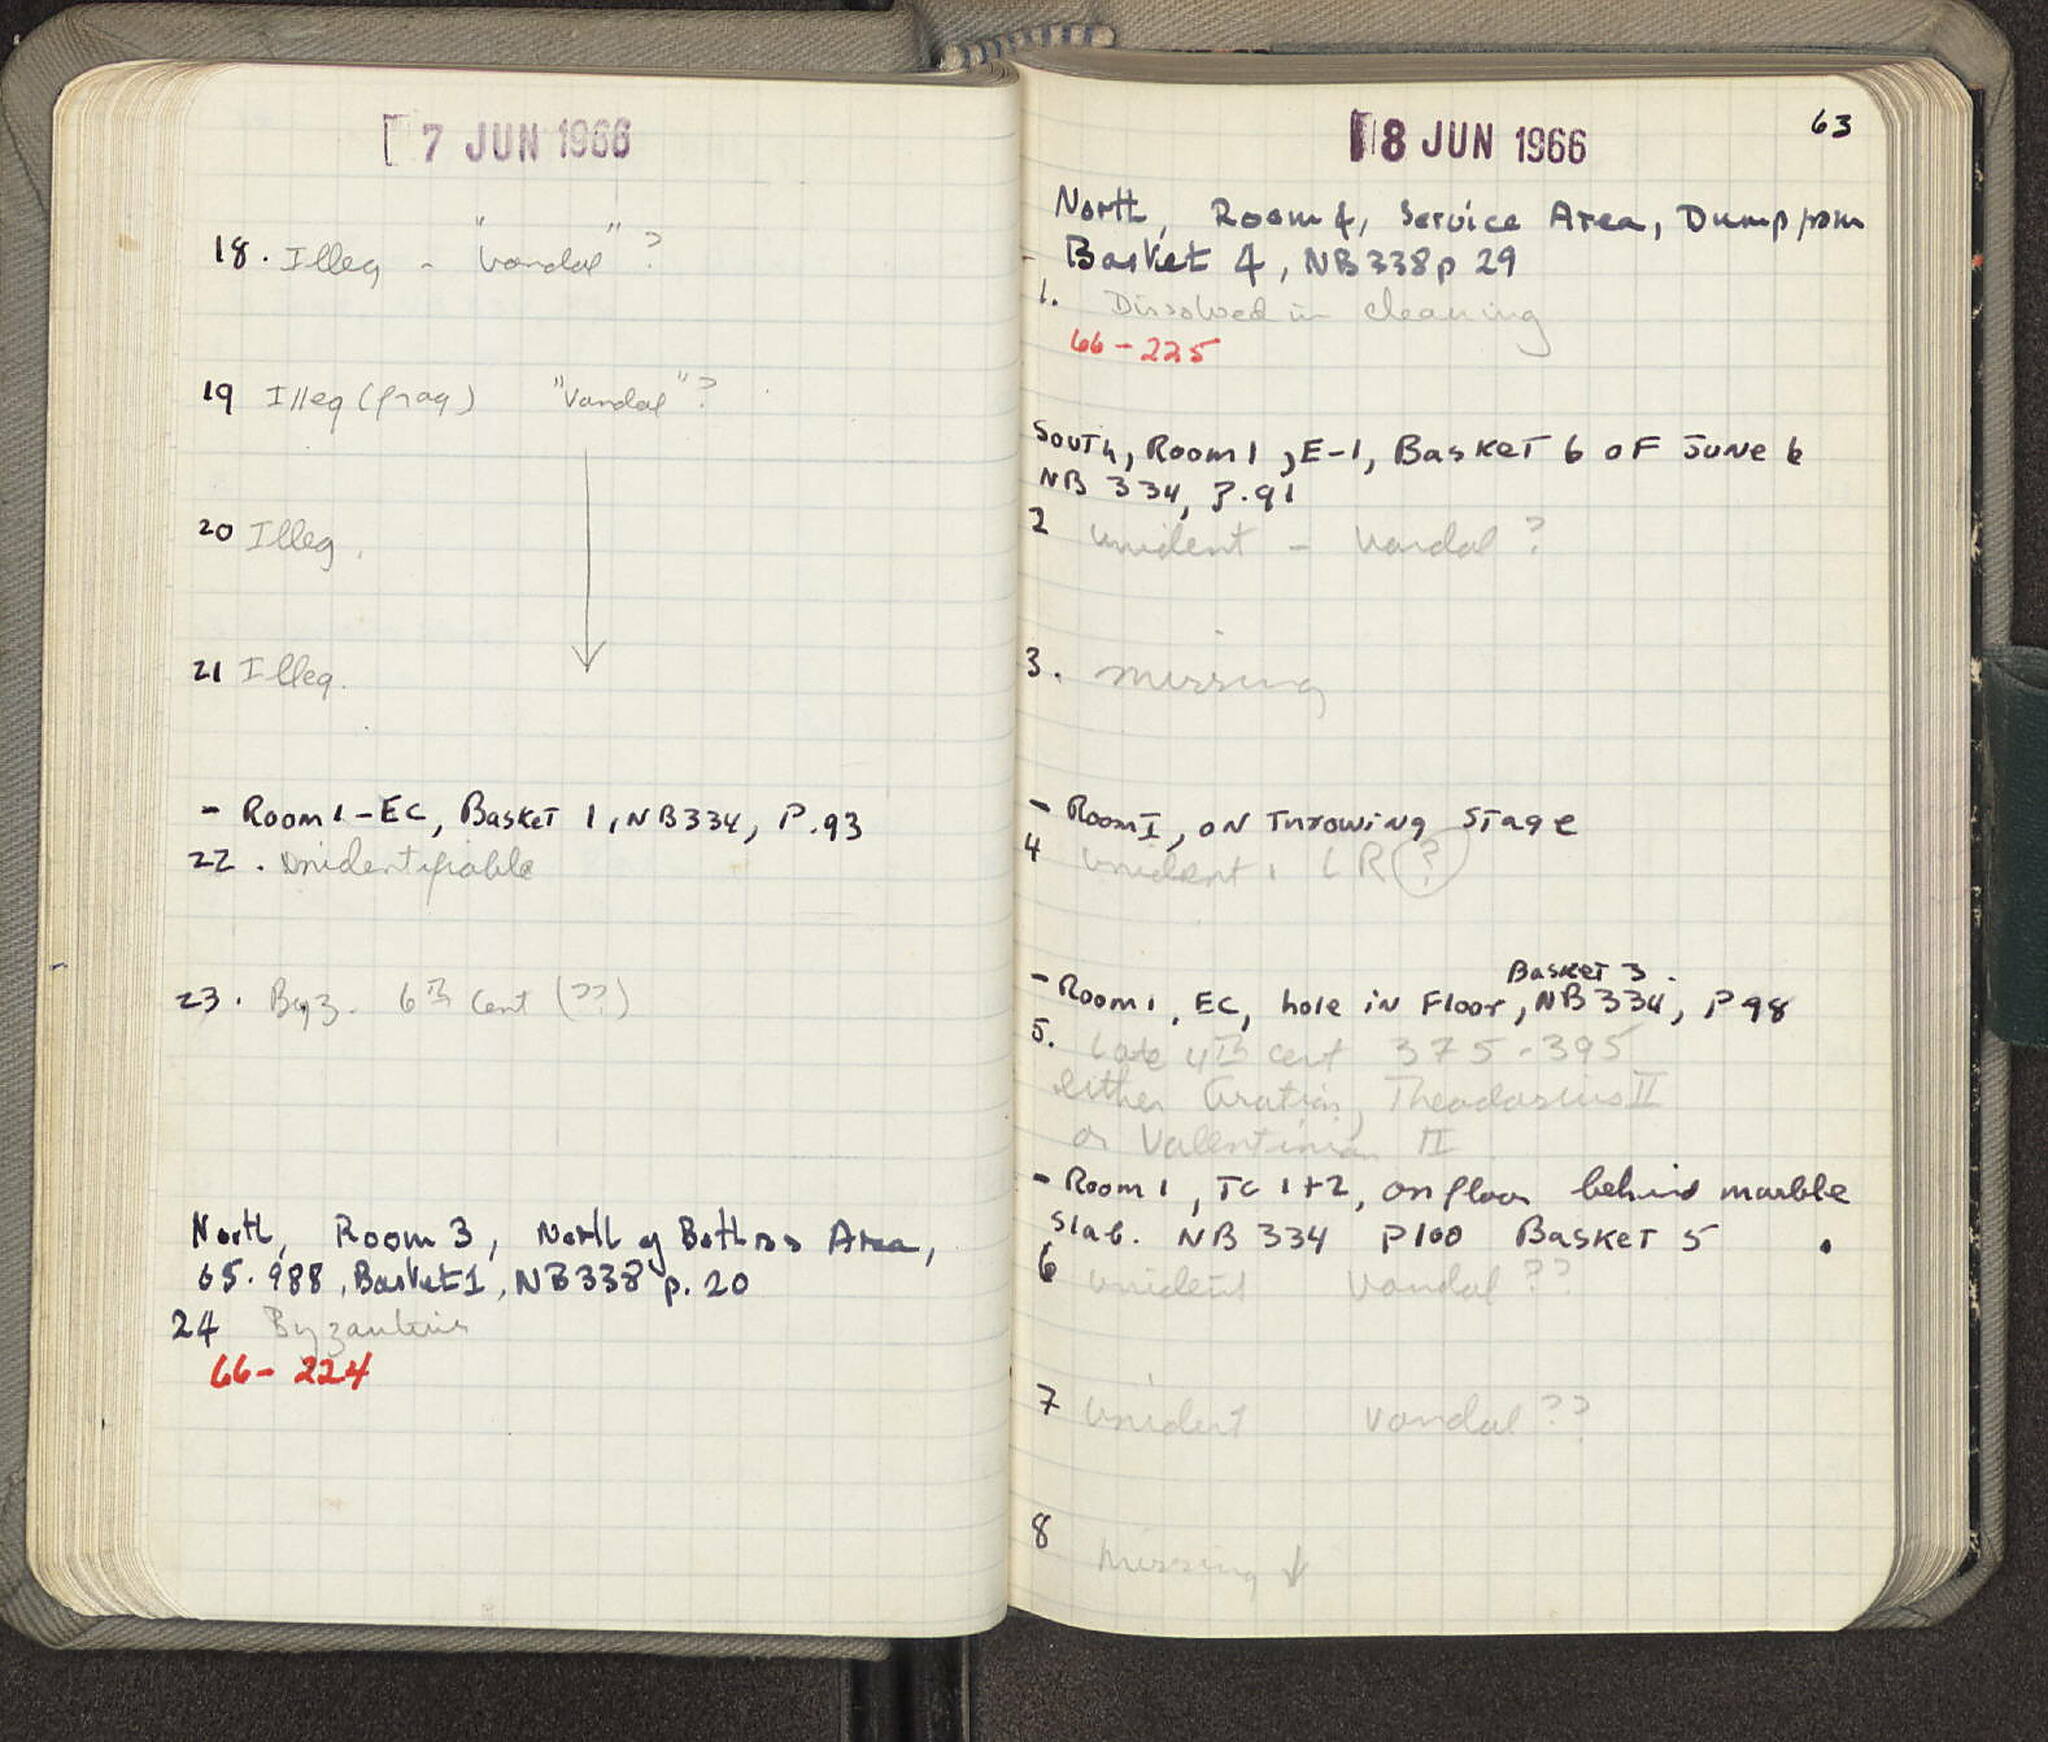 7 JUN 1966
18. Illeg - "Vandal" ?
19 Illeg (frag) "Vandal" ?
20 Illeg.
21 Illeg.
- Room 1-EC, Basket 1, NB334, P.93
22. Unidentifiable
23. Byz. 6th Cent (??)
North, Room 3, North of Bothros Area,
65.988, Basket 1, NB338 p. 20
24 Byzantine
66-224
63
8 JUN 1966
North, Room 4, Service Area, Dump from
- Basket 4, NB338 p 29
1. Dissolved in cleaning
66-225
South, Room 1, E-1, Basket 6 of June 6
NB 334, P.91
2 unident - Vandal ?
3. missing
- Room I, on Throwing Stage
4 unident. LR (?)
Basket 3.
- Room 1, EC, hole in Floor, NB 334, P 98
5. Late 4th cent 375-395
either Gratian, Theodosius II
or Valentinian II
- Room 1, TC 1+2, on floor behind marble
slab. NB 334 P100 Basket 5
6 unident Vandal ??
7 unident Vandal ??
8 missing ↓